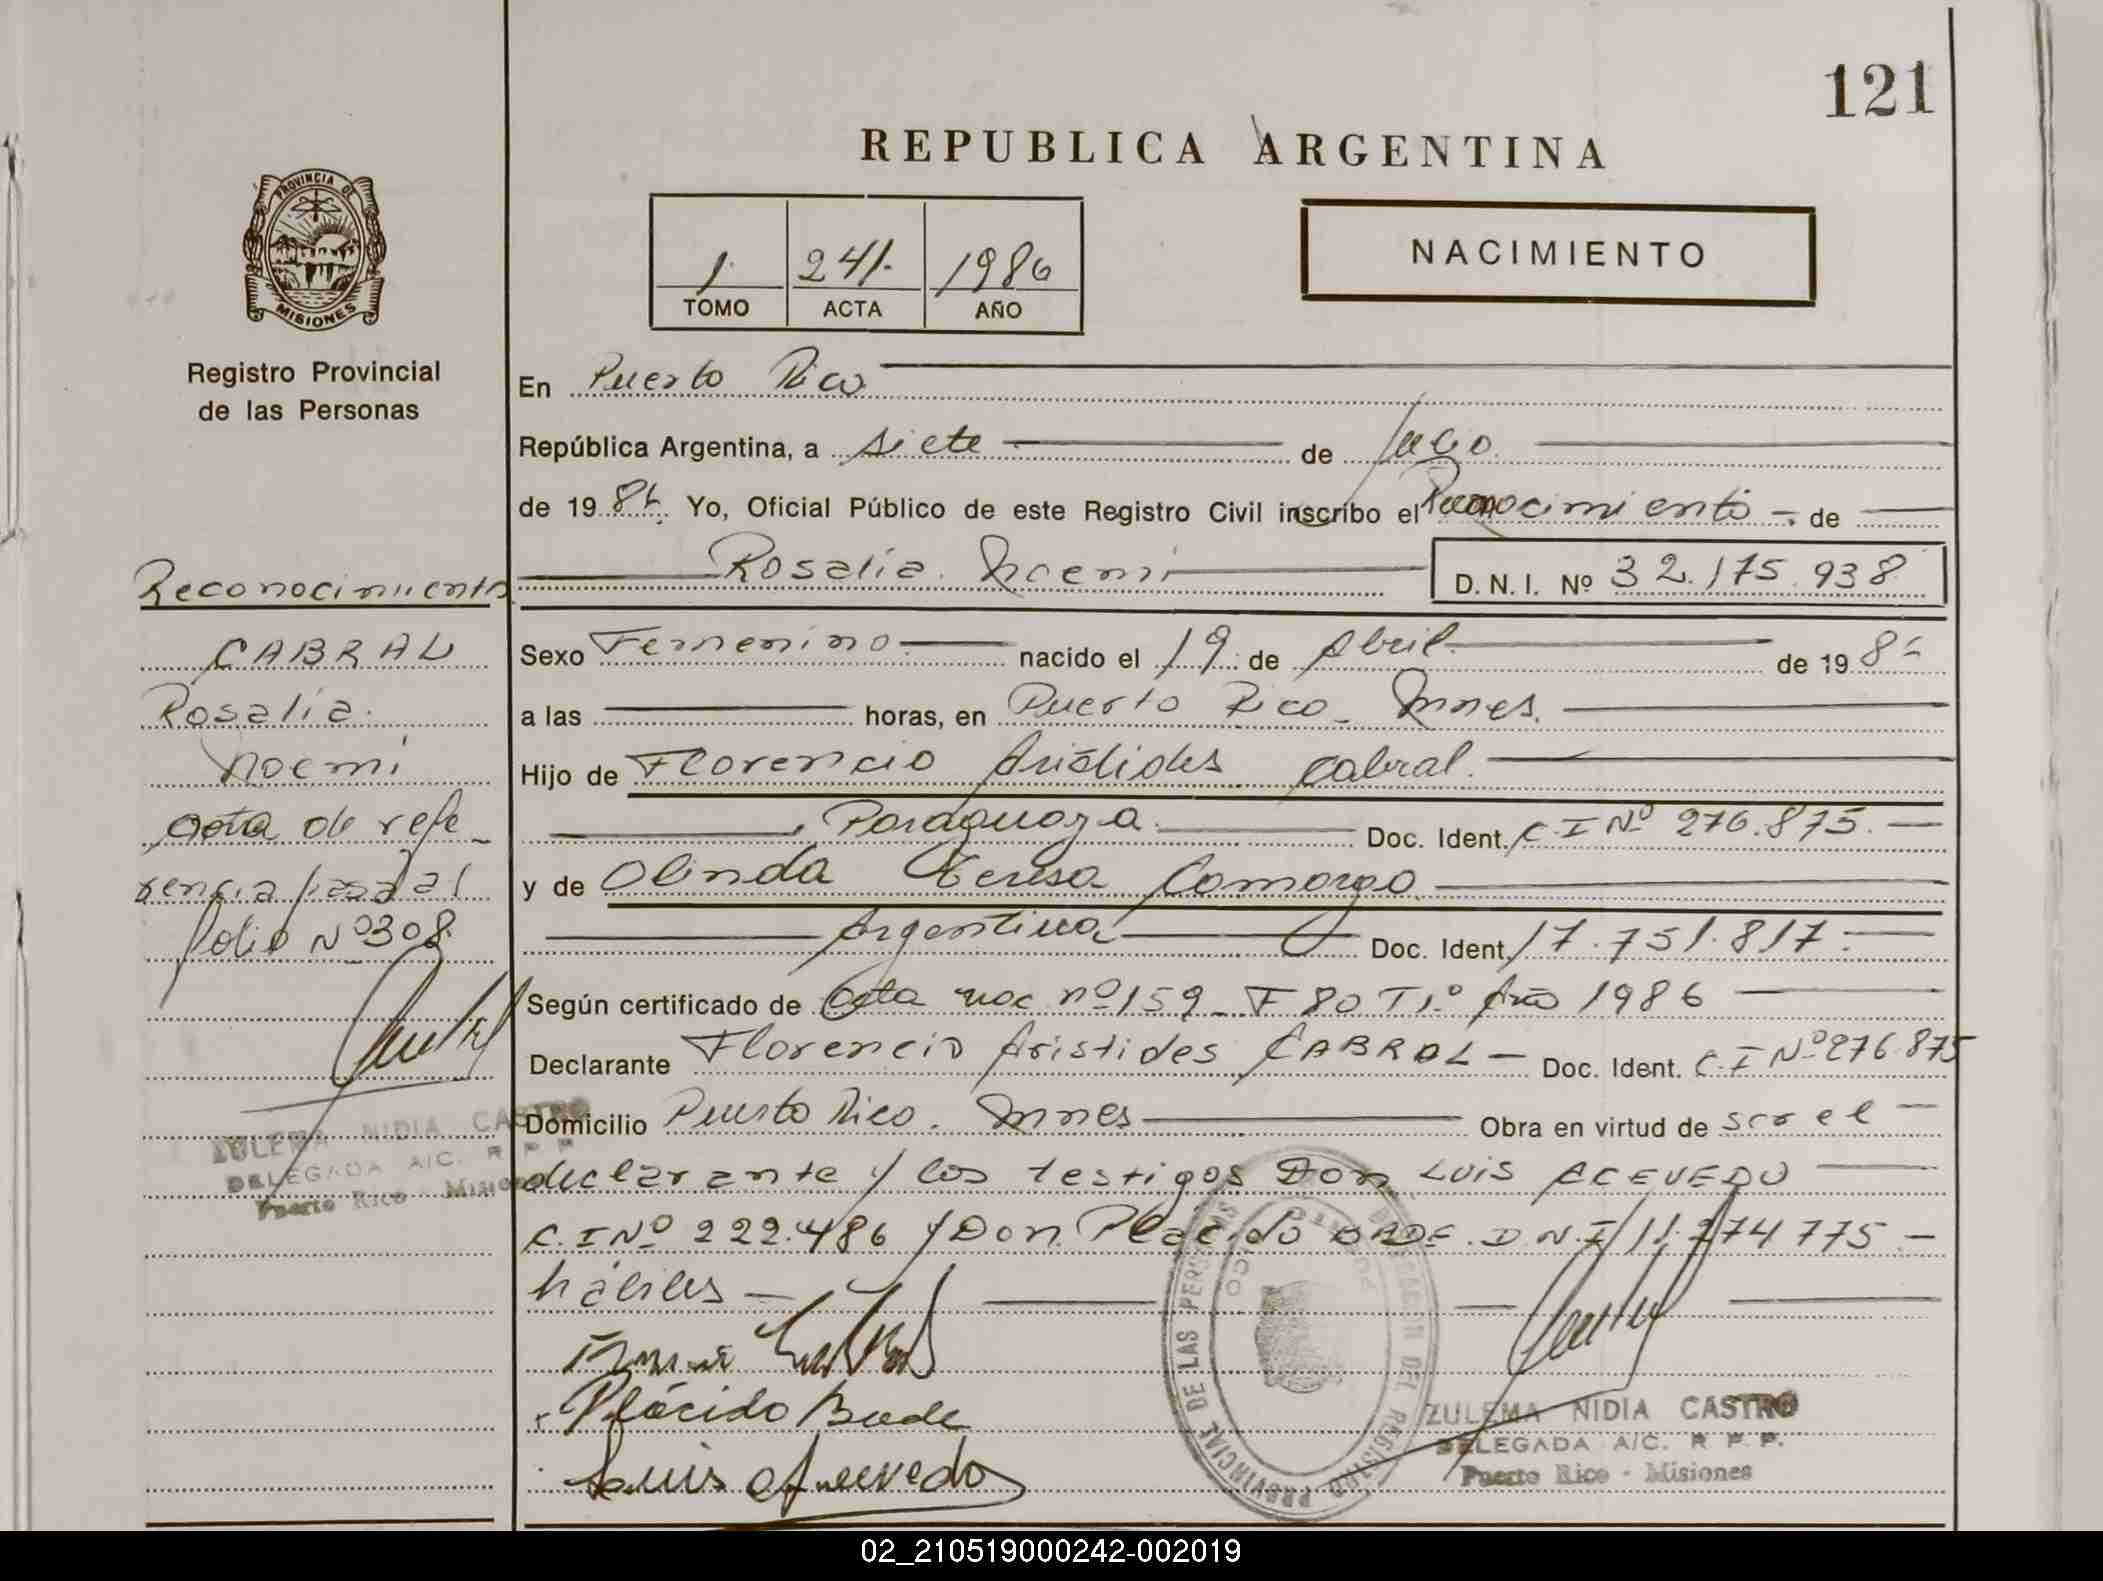 121
REPUBLICA ARGENTINA
PROVINCIA DE
MISIONES
Registro Provincial
de las Personas
1 241 1986
TOMO ACTA AÑO
NACIMIENTO
En Puerto Rico
República Argentina, a siete de
de 19 86 Yo, Oficial Público de este Registro Civil inscribo el Reconocimiento de
Rosalía Noemi D. N. I. Nº 32.175.938
Sexo Femenino nacido el 19 de Abril de 19 86
a las horas, en Puerto Rico - Mnes.
Hijo de Florencio Aristides Cabral.
Paraguaya. Doc. Ident. C.I Nº 276.875.
y de Olinda Teresa Camargo
Argentina Doc. Ident. 17.751.817.
Según certificado de Acta nac nº 159 - F 80 T 1º Año 1986
Declarante Florencio Aristides CABRAL - Doc. Ident. C.I Nº 276.875
Domicilio Puerto Rico. Mnes Obra en virtud de ser el
declarante y los testigos Don LUIS ACEVEDO
C.I Nº 222.486 y Don Placido BADE. D.N.I 11.274.775 -
hábiles -
Plácido Bade
Luis Acevedo
Reconocimiento
CABRAL
Rosalía
Noemi
acta de refe-
rencia pasa al
folio Nº 308
ZULEMA NIDIA CASTRO
DELEGADA A/C. R P P
Puerto Rico - Misiones
PROVINCIAL DE LAS PERSONAS
DEL REGISTRO
ZULEMA NIDIA CASTRO
DELEGADA A/C. R P P.
Puerto Rico - Misiones
02_210519000242-002019